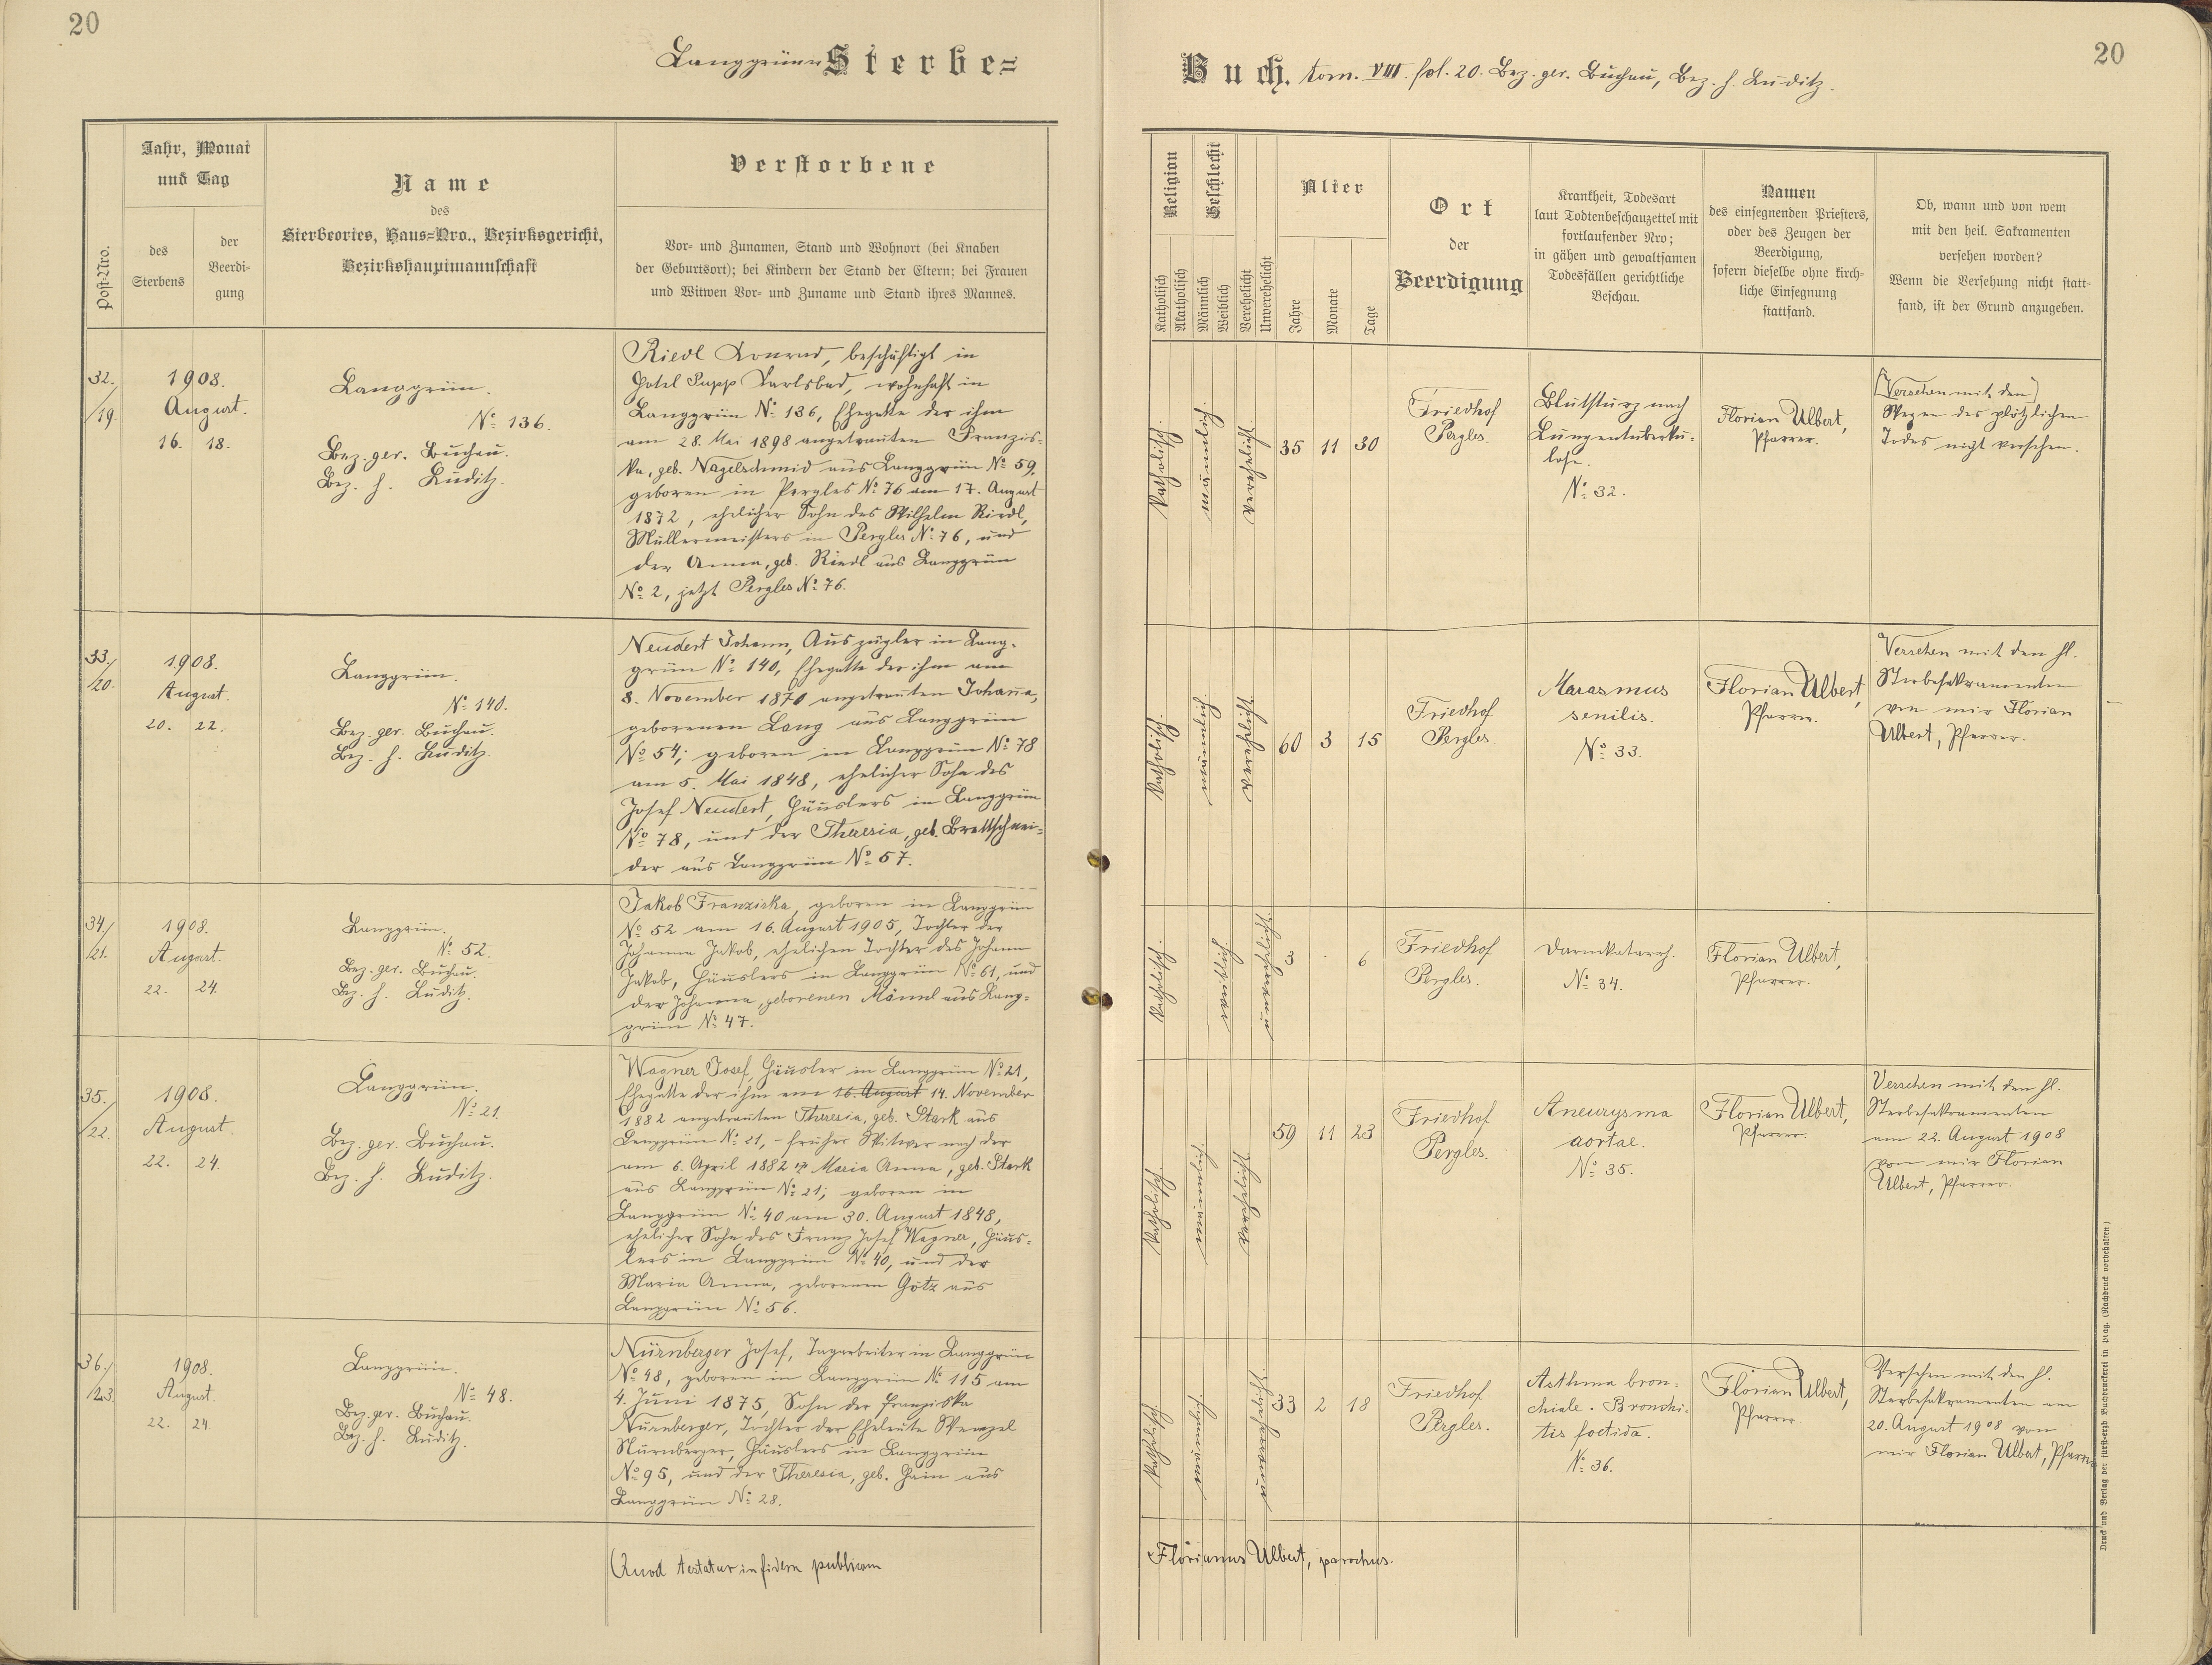 20
Langgrüner Sterbe=
Jahr, Monat
und Tag
Post=Nro.
des
Sterbens
der
Beerdi=
gung
Name
des
Sterbeortes, Haus=Nro., Bezirksgericht,
Bezirkshauptmannschaft
Verstorbene
Vor= und Zunamen, Stand und Wohnort (bei Knaben
der Geburtsort); bei Kindern der Stand der Eltern; bei Frauen
und Witwen Vor= und Zuname und Stand ihres Mannes.
32./
/19.
1908.
August.
16. 18.
Langgrün.
No 136.
Bez. ger. Buchau.
Bez. h. Luditz.
Riedl Konrad, beschäftigt in
Hotel Pupp Karlsbad, wohnhaft in
Langgrün No 136, Ehegatte der ihm
am 28. Mai 1898 angetrauten Franzis=
ka, geb. Nagelschmid aus Langgrün No 59,
geboren in Pergles No 76 am 17. August
1872, ehelicher Sohn des Wilhelm Riedl,
Müllermeisters in Pergles No 76, und
der Anna, geb. Riedl aus Langgrün
No 2, jetzt Pergles No 76.
33./
/20.
1908.
August.
20. 22.
Langgrün.
No 140.
Bez. ger. Buchau.
Bez. h. Luditz.
Neudert Johann, Auszügler in Lang=
grün No 140, Ehegatte der ihm am
8. November 1870 angetrauten Johanna,
geborenen Lang aus Langgrün
No 54; geboren in Langgrün No 78
am 5. Mai 1848, ehelicher Sohn des
Josef Neudert, Häuslers in Langgrün
No 78, und der Theresia, geb. Brettschnei=
der aus Langgrün No 57.
34./
/21.
1908.
August.
22. 24.
Langgrün.
No 52.
Bez. ger. Buchau.
Bez. h. Luditz.
Jakob Franziska, geboren in Langgrün
No 52 am 16. August 1905, Tochter der
Johanna Jakob, ehelichen Tochter des Johann
Jakob, Häuslers in Langgrün No 61, und
der Johanna, geborenen Männl aus Lang=
grün No 47.
35./
/22.
1908.
August.
22. 24.
Langgrün.
No 21.
Bez. ger. Buchau.
Bez. h. Luditz.
Wagner Josef, Häusler in Langgrün No 21,
Ehegatte der ihm am 16. August 14. November
1882 angetrauten Theresia, geb. Stark aus
Langgrün No 21, – früher Witwer nach der
am 6. April 1882 † Maria Anna, geb. Stark
aus Langgrün No 21; geboren in
Langgrün No 40 am 30. August 1848,
ehelicher Sohn des Franz Josef Wagner, Häus=
lers in Langgrün No 40, und der
Maria Anna, geborenen Götz aus
Langgrün No 56.
36./
/23.
1908.
August.
22. 24.
Langgrün.
No 48.
Bez. ger. Buchau.
Bez. h. Luditz.
Nürnberger Josef, Tagarbeiter in Langgrün
No 48, geboren in Langgrün No 115 am
4. Juni 1875, Sohn der Franziska
Nürnberger, Tochter der Eheleute Wenzel
Nürnberger, Häuslers in Langgrün
No 95, und der Theresia, geb. Hain aus
Langgrün No 28.
Quod testatur in fidem publicam
20
Buch. tom. VIII. fol. 20. Bez. ger. Buchau, Bez. h. Luditz.
Religion
Katholisch
Akatholisch
Geschlecht
Männlich
Weiblich
Verehelicht
Unverehelicht
Alter
Jahre
Monate
Tage
Ort
der
Beerdigung
Krankheit, Todesart
laut Todtenbeschauzettel mit
fortlaufender Nro;
in gähen und gewaltsamen
Todesfällen gerichtliche
Beschau.
Namen
des einsegnenden Priesters,
oder des Zeugen der
Beerdigung,
sofern dieselbe ohne kirch=
liche Einsegnung
stattfand.
Ob, wann und von wem
mit den heil. Sakramenten
versehen worden?
Wenn die Versehung nicht statt=
fand, ist der Grund anzugeben.
katholisch.
männlich.
verehelicht.
35 11 30
Friedhof
Pergles.
Blutsturz nach
Lungentuberku=
lose.
No 32.
Florian Ulbert,
Pfarrer.
(Versehen mit den)
Wegen des plötzlichen
Todes nicht versehen.
katholisch.
männlich.
verehelicht.
60 3 15
Friedhof
Pergles.
Marasmus
senilis.
No 33.
Florian Ulbert,
Pfarrer.
Versehen mit den hl.
Sterbesakramenten
von mir Florian
Ulbert, Pfarrer.
katholisch.
weiblich.
unverehelicht.
3 . 6
Friedhof
Pergles.
Darmkatarrh.
No 34.
Florian Ulbert,
Pfarrer.
katholisch.
männlich.
verehelicht.
59 11 23
Friedhof
Pergles.
Aneurysma
aortae.
No 35.
Florian Ulbert,
Pfarrer.
Versehen mit den hl.
Sterbesakramenten
am 22. August 1908
von mir Florian
Ulbert, Pfarrer.
katholisch.
männlich.
unverehelicht.
33 2 18
Friedhof
Pergles.
Asthma bron=
chiale. Bronchi=
tis foetida.
No 36.
Florian Ulbert,
Pfarrer.
Versehen mit den hl.
Sterbesakramenten am
20. August 1908 von
mir Florian Ulbert, Pfarrer
Florianus Ulbert, parochus.
Druck und Verlag der fürst=erzb. Buchdruckerei in Prag. (Nachdruck vorbehalten.)